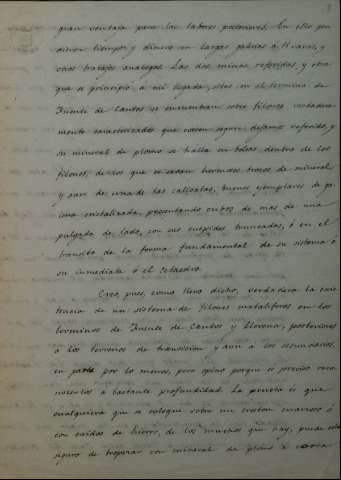 gran ventaja para las labores posteriores. En esto per-
dieron tiempo y dinero en largos pleitos á Huelva, y
otros trabajos analogos. Las dos minas referidas, y otra
que se principió á mi llegada, sitas en el termino de
Fuente de Cantos se encuentran sobre filones verdadera-
mente caracterizados que corren segun dejamos referido, y
su mineral de plomo se halla en bolsas dentro de los
filones, de los que se sacan hermosos trozos de mineral
y aun de una de las calicatas, buenos ejemplares de ga-
lena cristalizada, presentando cubos de mas de una
pulgada de lado, con sus cuspides truncadas, ó en el
transito de la forma fundamental de su sistema á
su inmediata ó el octaedro.
Creo, pues, como llevo dicho, verdadera la exis-
tencia de un sistema de filones metaliferos en los
terminos de Fuente de Cantos y Llerena, posteriores
á los terrenos de transicion y aun á los secundarios,
en parte por lo menos, pero opino porque es preciso reco-
nocerlos á bastante profundidad. La prueba es que
cualquiera que se coloque sobre un creston cuarzoso ó
con oxidos de hierro, de los muchos que hay, puede estar
seguro de tropezar con mineral de plomo á cerca